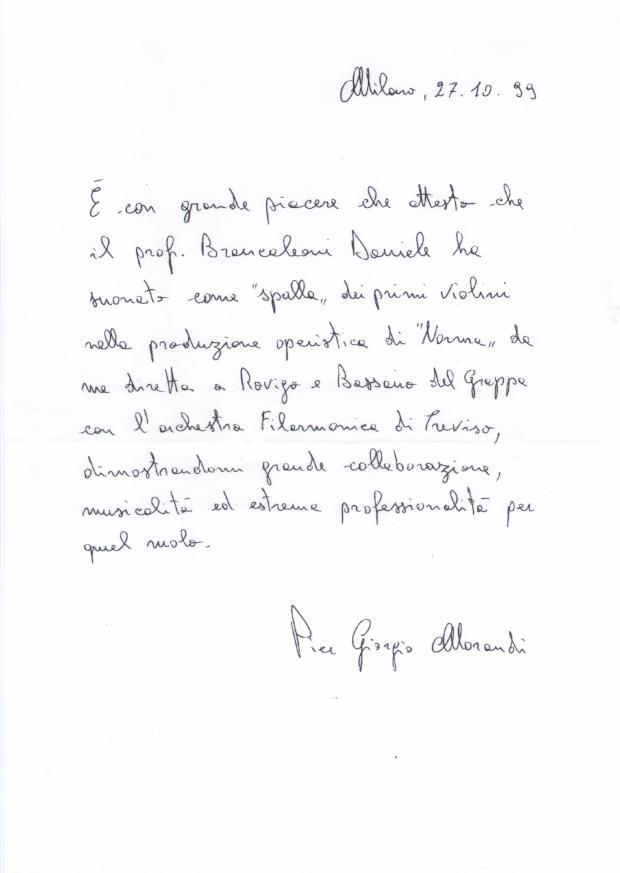 Milano, 27.10.99
È con grande piacere che attesto che
il prof. Brancaleoni Daniele ha
suonato come "spalla„ dei primi violini
nella produzione operistica di "Norma„ da
me diretta a Rovigo e Bassano del Grappa
con l'orchestra Filarmonica di Treviso,
dimostrandomi grande collaborazione,
musicalità ed estrema professionalità per
quel ruolo.
Pier Giorgio Morandi